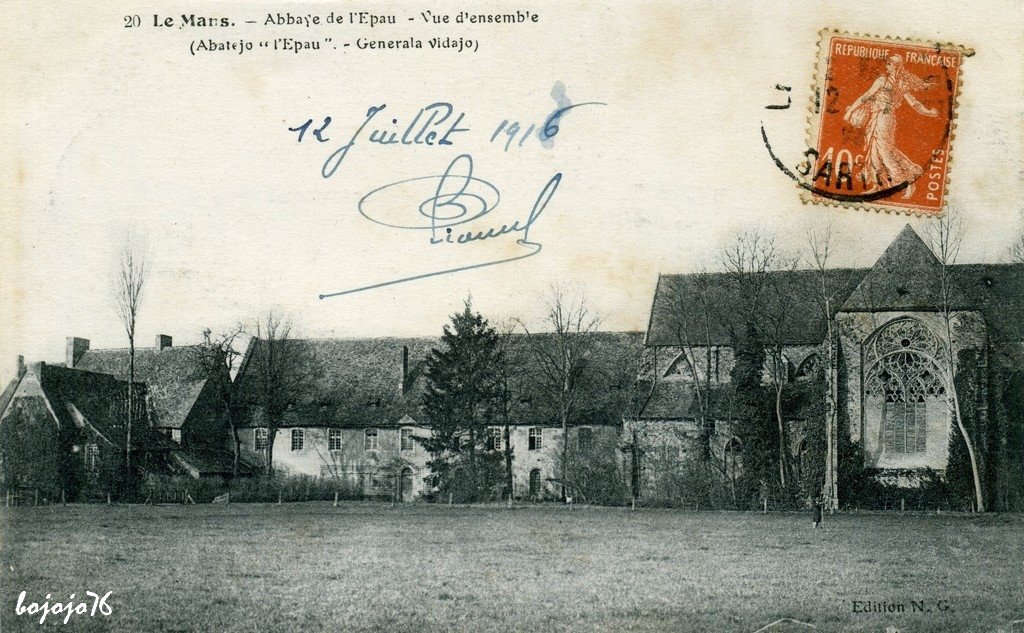 20 Le Mans. - Abbaye de l'Epau - Vue d'ensemble
(Abatejo "l'Epau". - Generala vidajo)
12 Juillet 1916
REPUBLIQUE FRANÇAISE
12
10c
POSTES
SARTHE
Edition N. G.
bojojo76